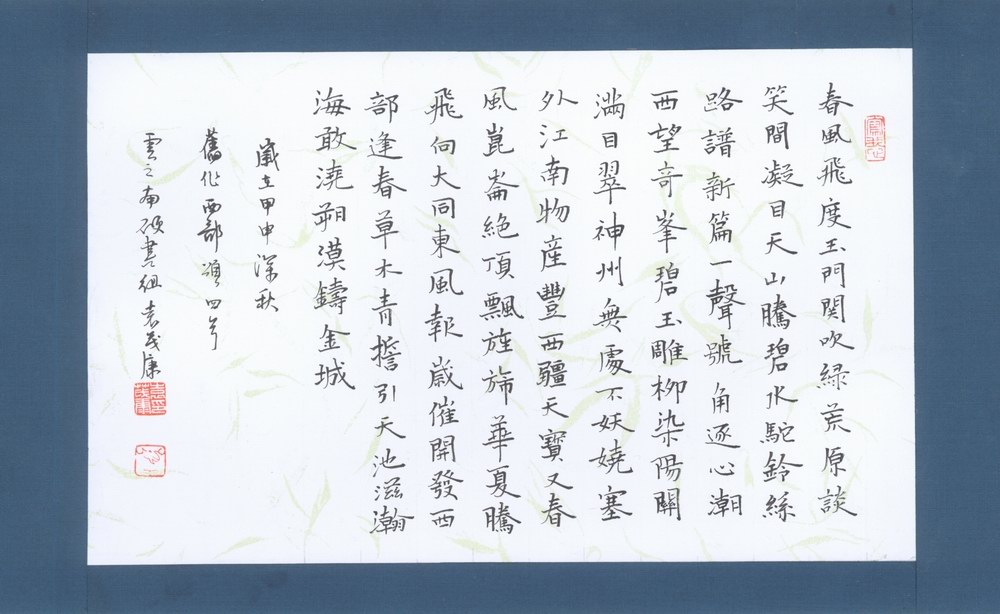 春風飛度玉門関吹緑荒原談
笑間凝目天山騰碧水駝鈴絲
路譜新篇一聲號角逐心潮
西望奇峯碧玉雕柳染陽關
滿目翠神州無處不妖嬈塞
外江南物産豐西疆天寶又春
風崑崙絕頂飄旌斾華夏騰
飛向大同東風報歲催開發西
部逢春草木青擔引天池滋瀚
海敢澆朔漠鑄金城
歲立甲申深秋
舊作西部頌四首
雲之南硬書組袁茂康